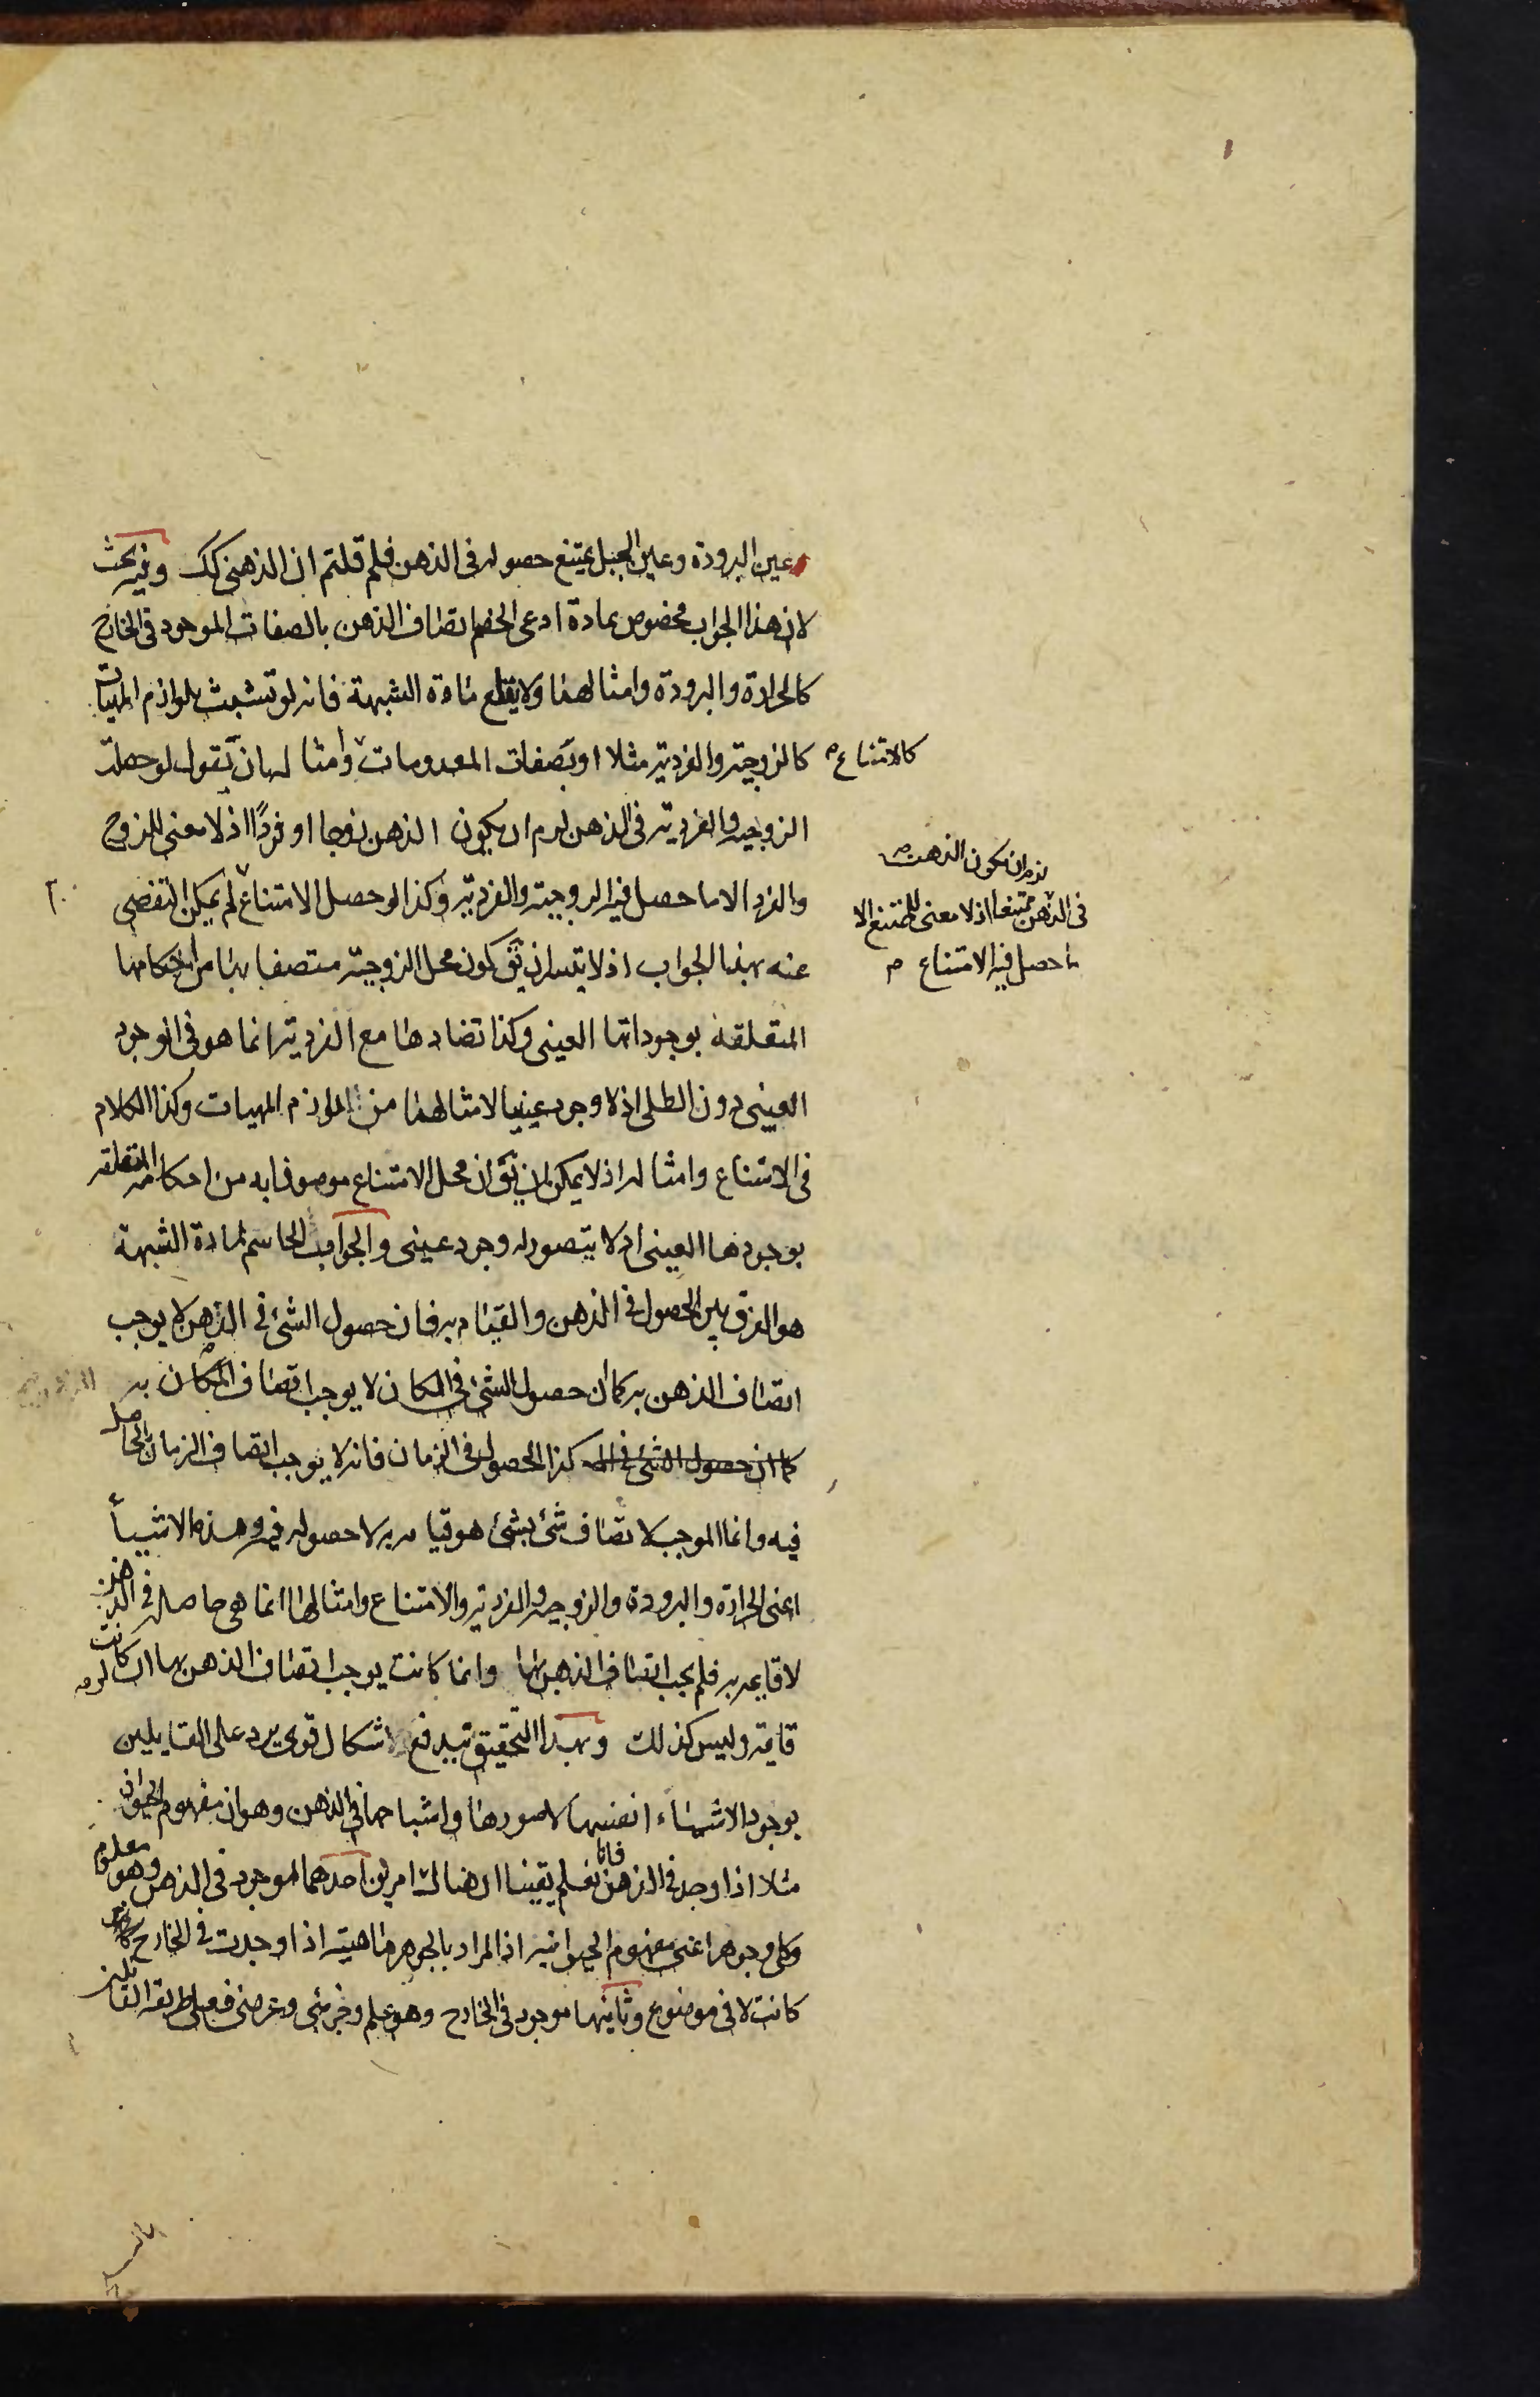 عين البرودة وعين الجبل يمتنع حصوله فى الذهن فلم قلتم ان الذهنى كك وفيه بحث
لان هذا الجواب مخصوص بمادة ادعى الخصم اتصاف الذهن بالصفات الموجود فى الخارج
كالحرارة والبرودة وامثالهما ولا يقلع مادة الشبهة فانه لو تشبث بلوازم المهيات
كالزوجية والفردية مثلا او بصفات المعدومات وامثالها بان تقول لو حصلت
كالامتناع م
الزوجية والفردية فى الذهن لزم ان يكون الذهن زوجا او فردًا اذ لا معنى للزوج
والفرد الا ما حصل فيه الزوجية والفردية وكذا لو حصل الامتناع لم يمكن التفصى
لزم ان يكون الذهن
فى الذهن ممتنعا اذ لا معنى للممتنع الا
ما حصل فيه الامتناع م
عنه بهذا الجواب اذ لا يتيسر ان يق كون محل الزوجية متصفا بها من احكامها
المتعلقة بوجوداتها العينى وكذا تضادها مع الفردية انما هو فى الوجود
العينى دون الظلى اذ لا وجود عينيا لامثالهما من لوازم المهيات وكذا الكلام
فى الامتناع وامثاله اذ لا يمكن ان يق ان محل الامتناع موصوفا به من احكامه المتعلقه
بوجودها العينى اذ لا يتصور له وجود عينى والجواب الحاسم لمادة الشبهة
هو الفرق بين الحصول فى الذهن والقيام به فان حصول الشئ فى الذهن لا يوجب
اتصاف الذهن به كما ان حصول الشئ فى المكان لا يوجب اتصاف المكان به
كما ان حصول الشئ فى الم كذا الحصول فى الزمان فانه لا يوجب اتصاف الزمان بالحاصل
فيه وانما الموجب لاتصاف شئ بشئ هو قيامه به لا حصوله فيه وهذه الاشيأ
اعنى الحرارة والبرودة والزوجية والفردية والامتناع وامثالها انما هى حاصله فى الذهن
لا قايمه به فلم يجب اتصاف الذهن بها وانما كانت يوجب اتصاف الذهن بها ان كانت
قايمة وليس كذلك وبهذا التحقيق يندفع اشكال قوى يرد على القايلين
بوجود الاشياء انفسها لا صورها واشباحها فى الذهن وهو ان مفهوم الحيوان
مثلا اذا وجد فى الذهن فانا نعلم يقينا ان هناك امرين احدهما موجود فى الذهن وهو معلوم
وكلى وجوهر اعنى مفهوم الحيوانيه اذ المراد بالجوهر ماهية اذا وجدت فى الخارج
كانت لا فى موضوع وثانيها موجود فى الخارج وهو علم وجزئى وعرضى فعلى طريقه القايلين